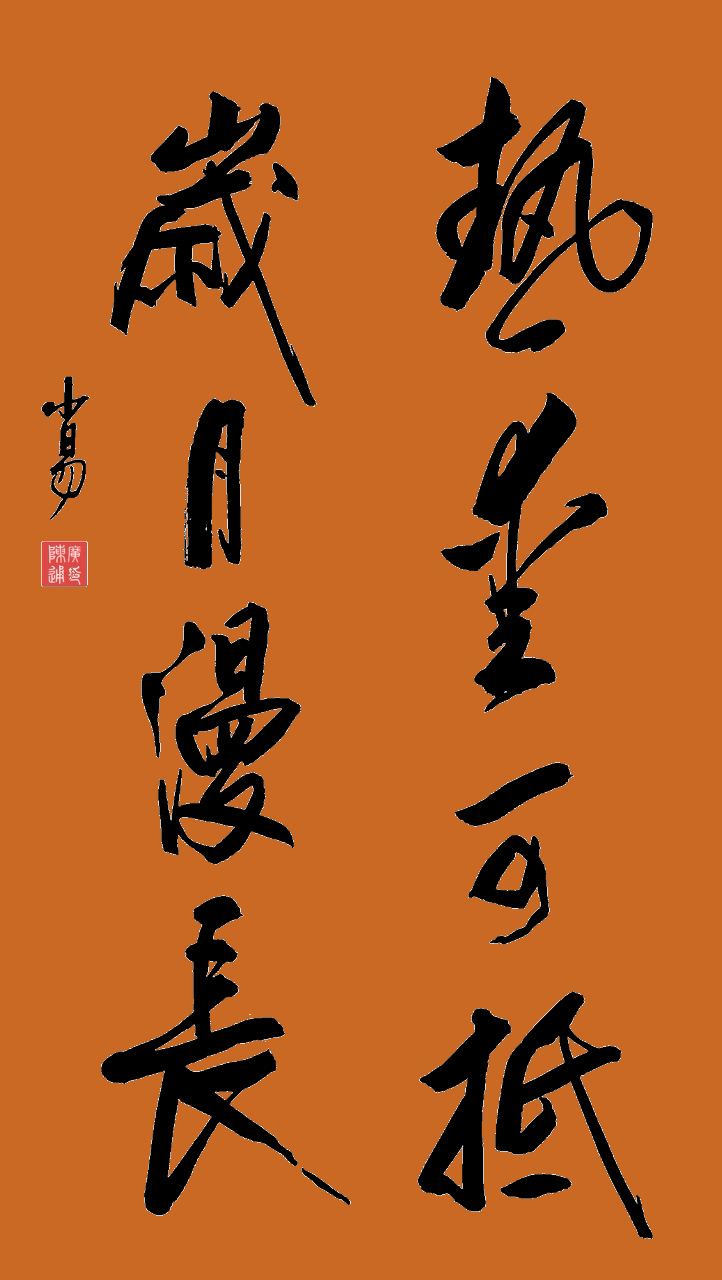 熱愛可抵
歲月漫長
小易